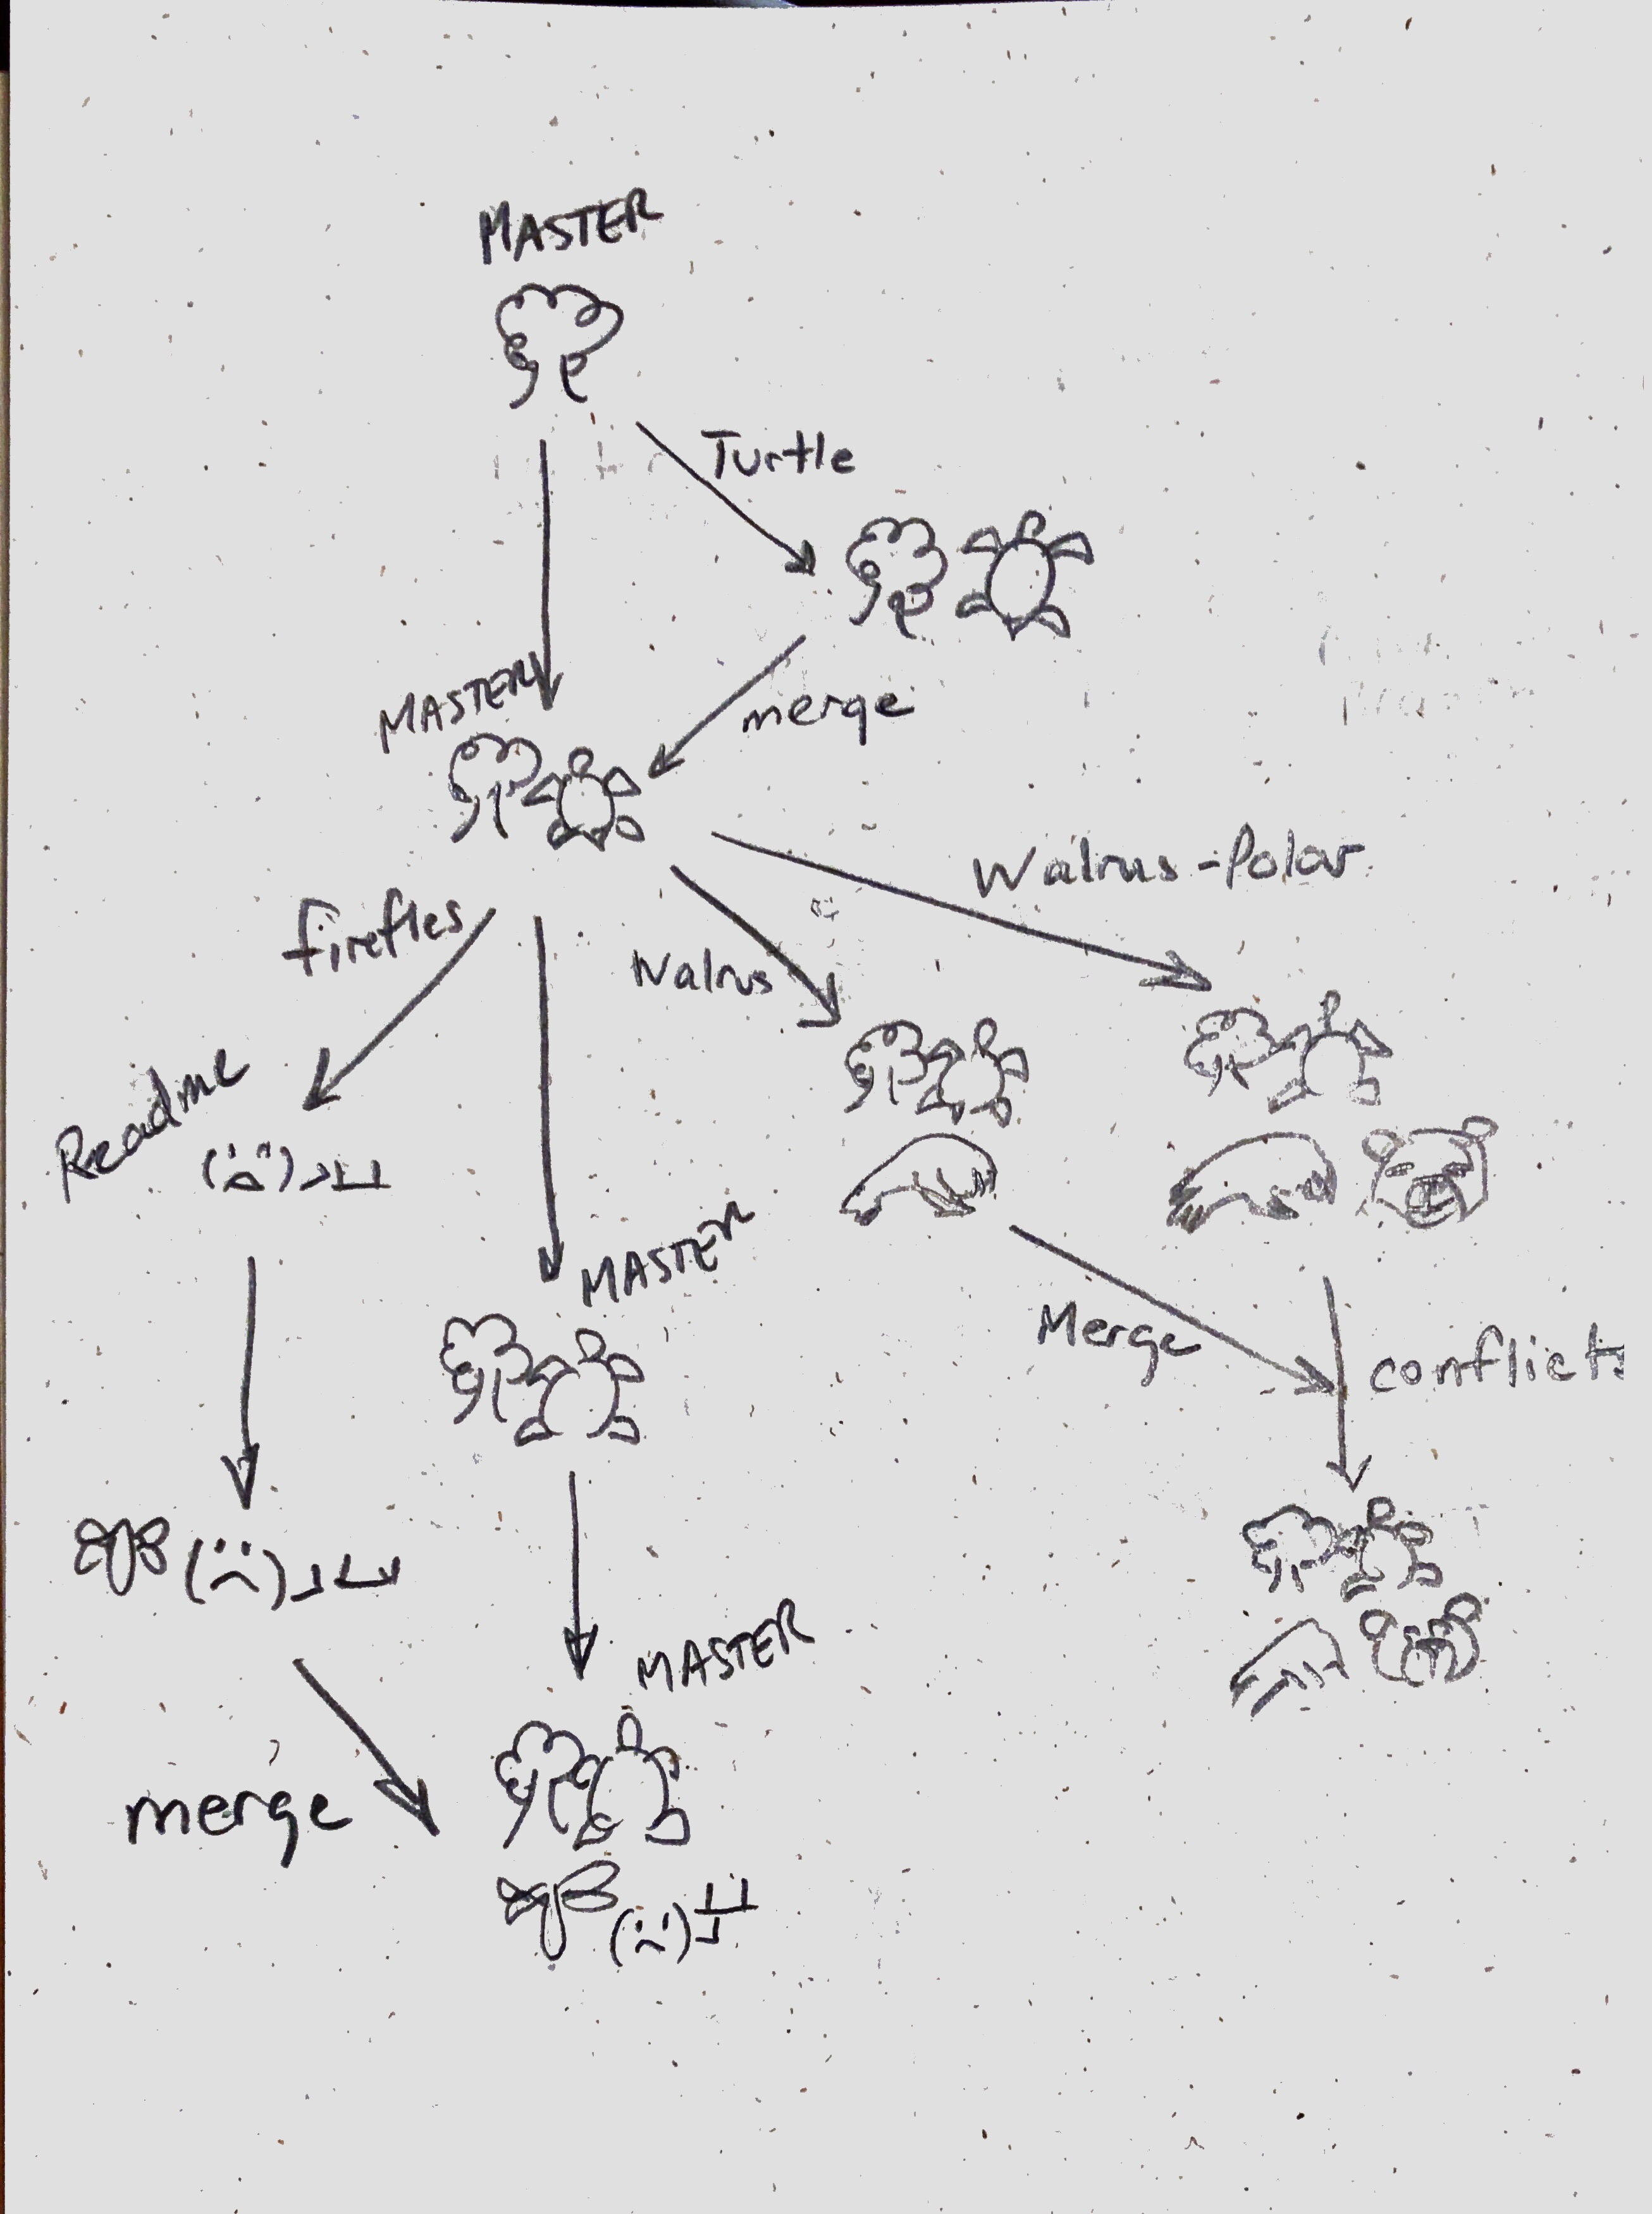 MASTER
Turtle
MASTER
merge
Walrus-Polar
firefles
Walrus
Readme
MASTER
Merge
conflicts
MASTER
merge